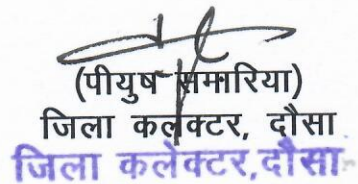 (पीयुष समारिया)
जिला कलेक्टर, दौसा
जिला कलेक्टर,दौसा